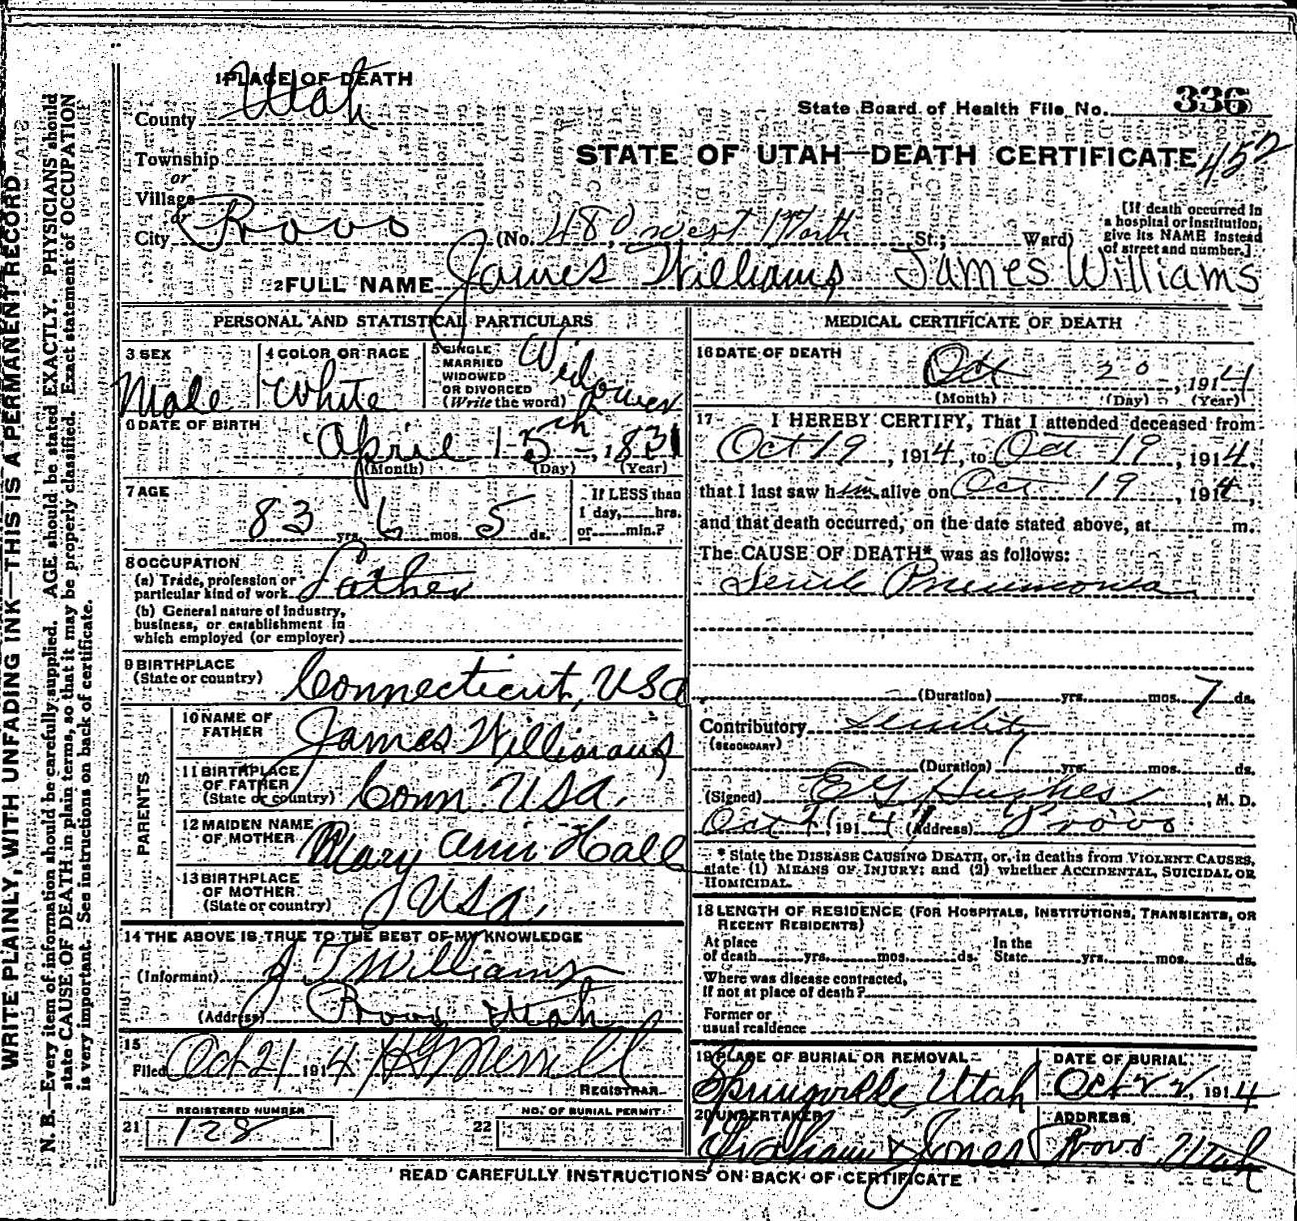 WRITE PLAINLY, WITH UNFADING INK—THIS IS A PERMANENT RECORD
N. B.—Every item of information should be carefully supplied. AGE should be stated EXACTLY. PHYSICIANS should
state CAUSE OF DEATH in plain terms, so that it may be properly classified. Exact statement of OCCUPATION
is very important. See instructions on back of certificate.
1 PLACE OF DEATH
County Utah
State Board of Health File No. 336
Township
or
STATE OF UTAH—DEATH CERTIFICATE 452
Village
or
City Provo (No. 480 West 1 North St.; Ward)
[If death occurred in
a hospital or institution,
give its NAME instead
of street and number.]
2 FULL NAME James Williams James Williams
PERSONAL AND STATISTICAL PARTICULARS
3 SEX Male
4 COLOR OR RACE White
5 SINGLE
MARRIED
WIDOWED
OR DIVORCED
(Write the word) Widower
6 DATE OF BIRTH
April 15th, 1831
(Month) (Day) (Year)
7 AGE
83 yrs. 6 mos. 5 ds.
If LESS than
1 day, hrs.
or min.?
8 OCCUPATION
(a) Trade, profession or
particular kind of work
(b) General nature of industry,
business, or establishment in
which employed (or employer)
9 BIRTHPLACE
(State or country) Connecticut, USA
PARENTS
10 NAME OF
FATHER James Williams
11 BIRTHPLACE
OF FATHER
(State or country) Conn USA.
12 MAIDEN NAME
OF MOTHER Mary Ann Hall
13 BIRTHPLACE
OF MOTHER
(State or country) USA.
14 THE ABOVE IS TRUE TO THE BEST OF MY KNOWLEDGE
(Informant) J T Williams
(Address) Provo Utah
15
Filed Oct 21 1914 H G Merrill
REGISTRAR
21 REGISTERED NUMBER
128
22 NO. OF BURIAL PERMIT
MEDICAL CERTIFICATE OF DEATH
16 DATE OF DEATH
Oct 20, 1914
(Month) (Day) (Year)
17 I HEREBY CERTIFY, That I attended deceased from
Oct 19, 1914, to Oct. 19, 1914,
that I last saw him alive on Oct 19, 1914,
and that death occurred, on the date stated above, at m.
The CAUSE OF DEATH* was as follows:
Senile Pneumonia
(Duration) yrs. mos. 7 ds.
Contributory Senility
(SECONDARY)
(Duration) yrs. mos. ds.
(Signed) E G Hughes, M. D.
Oct 21 1914 (Address) Provo
* State the DISEASE CAUSING DEATH, or, in deaths from VIOLENT CAUSES,
state (1) MEANS OF INJURY; and (2) whether ACCIDENTAL, SUICIDAL OR
HOMICIDAL.
18 LENGTH OF RESIDENCE (FOR HOSPITALS, INSTITUTIONS, TRANSIENTS, OR
RECENT RESIDENTS)
At place
of death yrs. mos. ds.
In the
State yrs. mos. ds.
Where was disease contracted,
if not at place of death?
Former or
usual residence
19 PLACE OF BURIAL OR REMOVAL
Springville Utah
DATE OF BURIAL
Oct 22, 1914
20 UNDERTAKER
Graham & Jones
ADDRESS
Provo Utah
READ CAREFULLY INSTRUCTIONS ON BACK OF CERTIFICATE